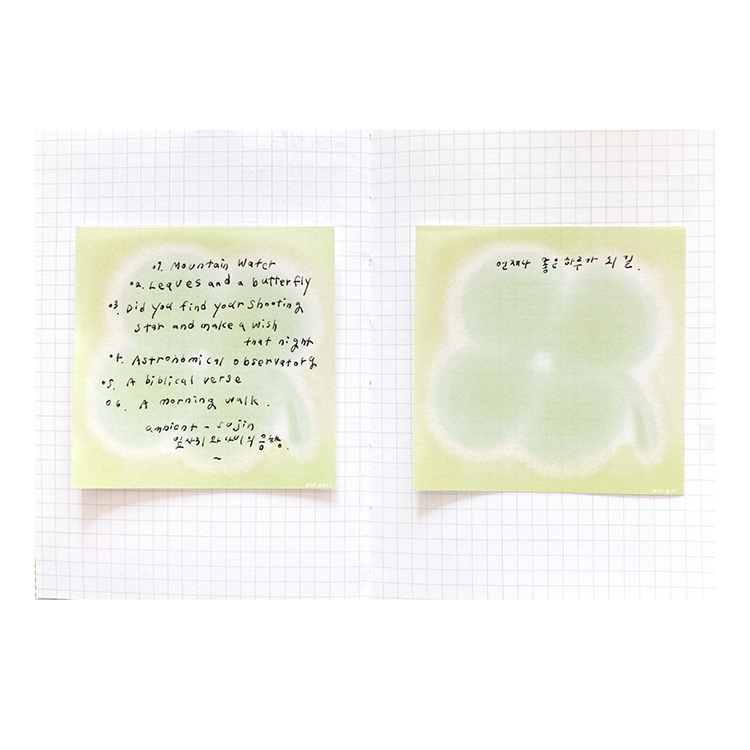 01. Mountain Water
02. Leaves and a butterfly
03. Did you find your shooting
star and make a wish
that night
04. Astronomical observatory
05. A biblical verse
06. A morning walk.
ambient - sujin
잎사귀와 나비의 음행.
언제나 좋은 하루가 되길.